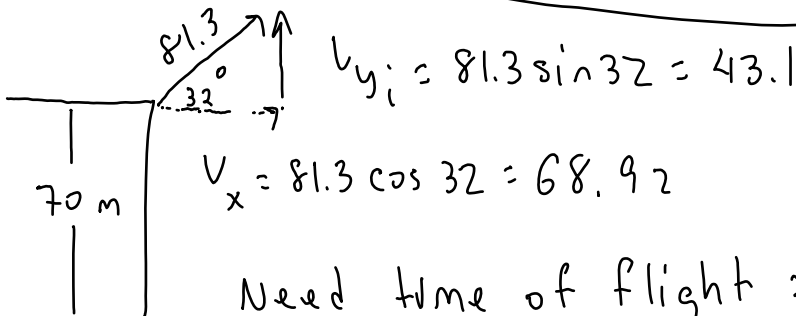 81.3
32°
V_yi = 81.3 sin 32 = 43.1
70 m
V_x = 81.3 cos 32 = 68.92
Need time of flight :